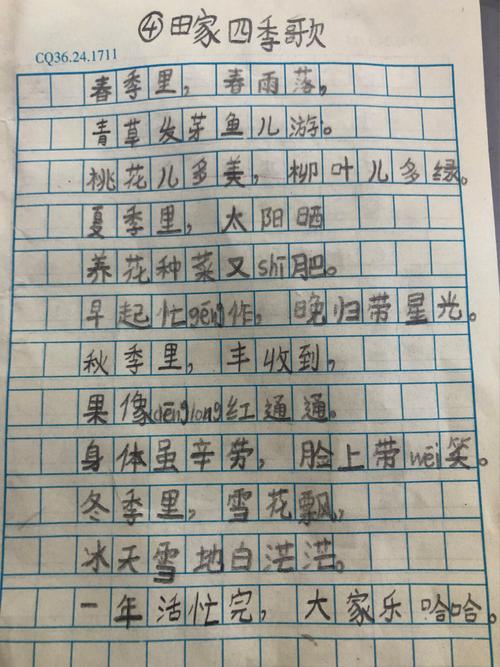 ④田家四季歌
CQ36.24.1711
春季里，春雨落，
青草发芽鱼儿游。
桃花儿多美，柳叶儿多绿。
夏季里，太阳晒
养花种菜又shī肥。
早起忙gēng作，晚归带星光。
秋季里，丰收到，
果像dēnglong红通通。
身体虽辛劳，脸上带wēi笑。
冬季里，雪花飘，
冰天雪地白茫茫。
一年活忙完，大家乐哈哈。